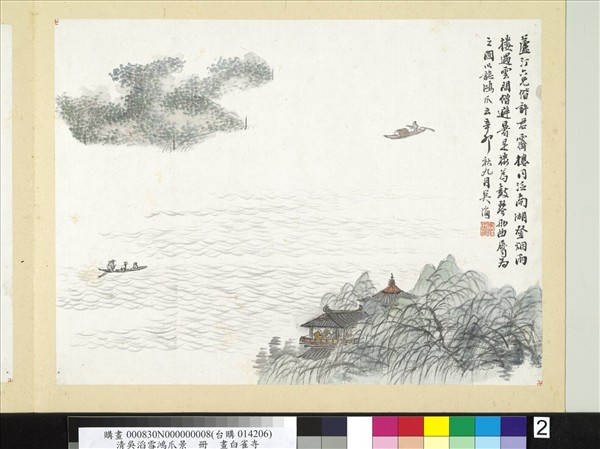 蘆汀六兄偕許君霽樓同泛南湖登烟雨
樓遇雲閒偕避暑是樓為鼓琴兩曲屬為
之圖以誌鴻爪云辛卯秋九月吳滔
購畫 000830N000000008(台購 014206)
清吳滔雪鴻爪景　冊　畫白雀寺
2